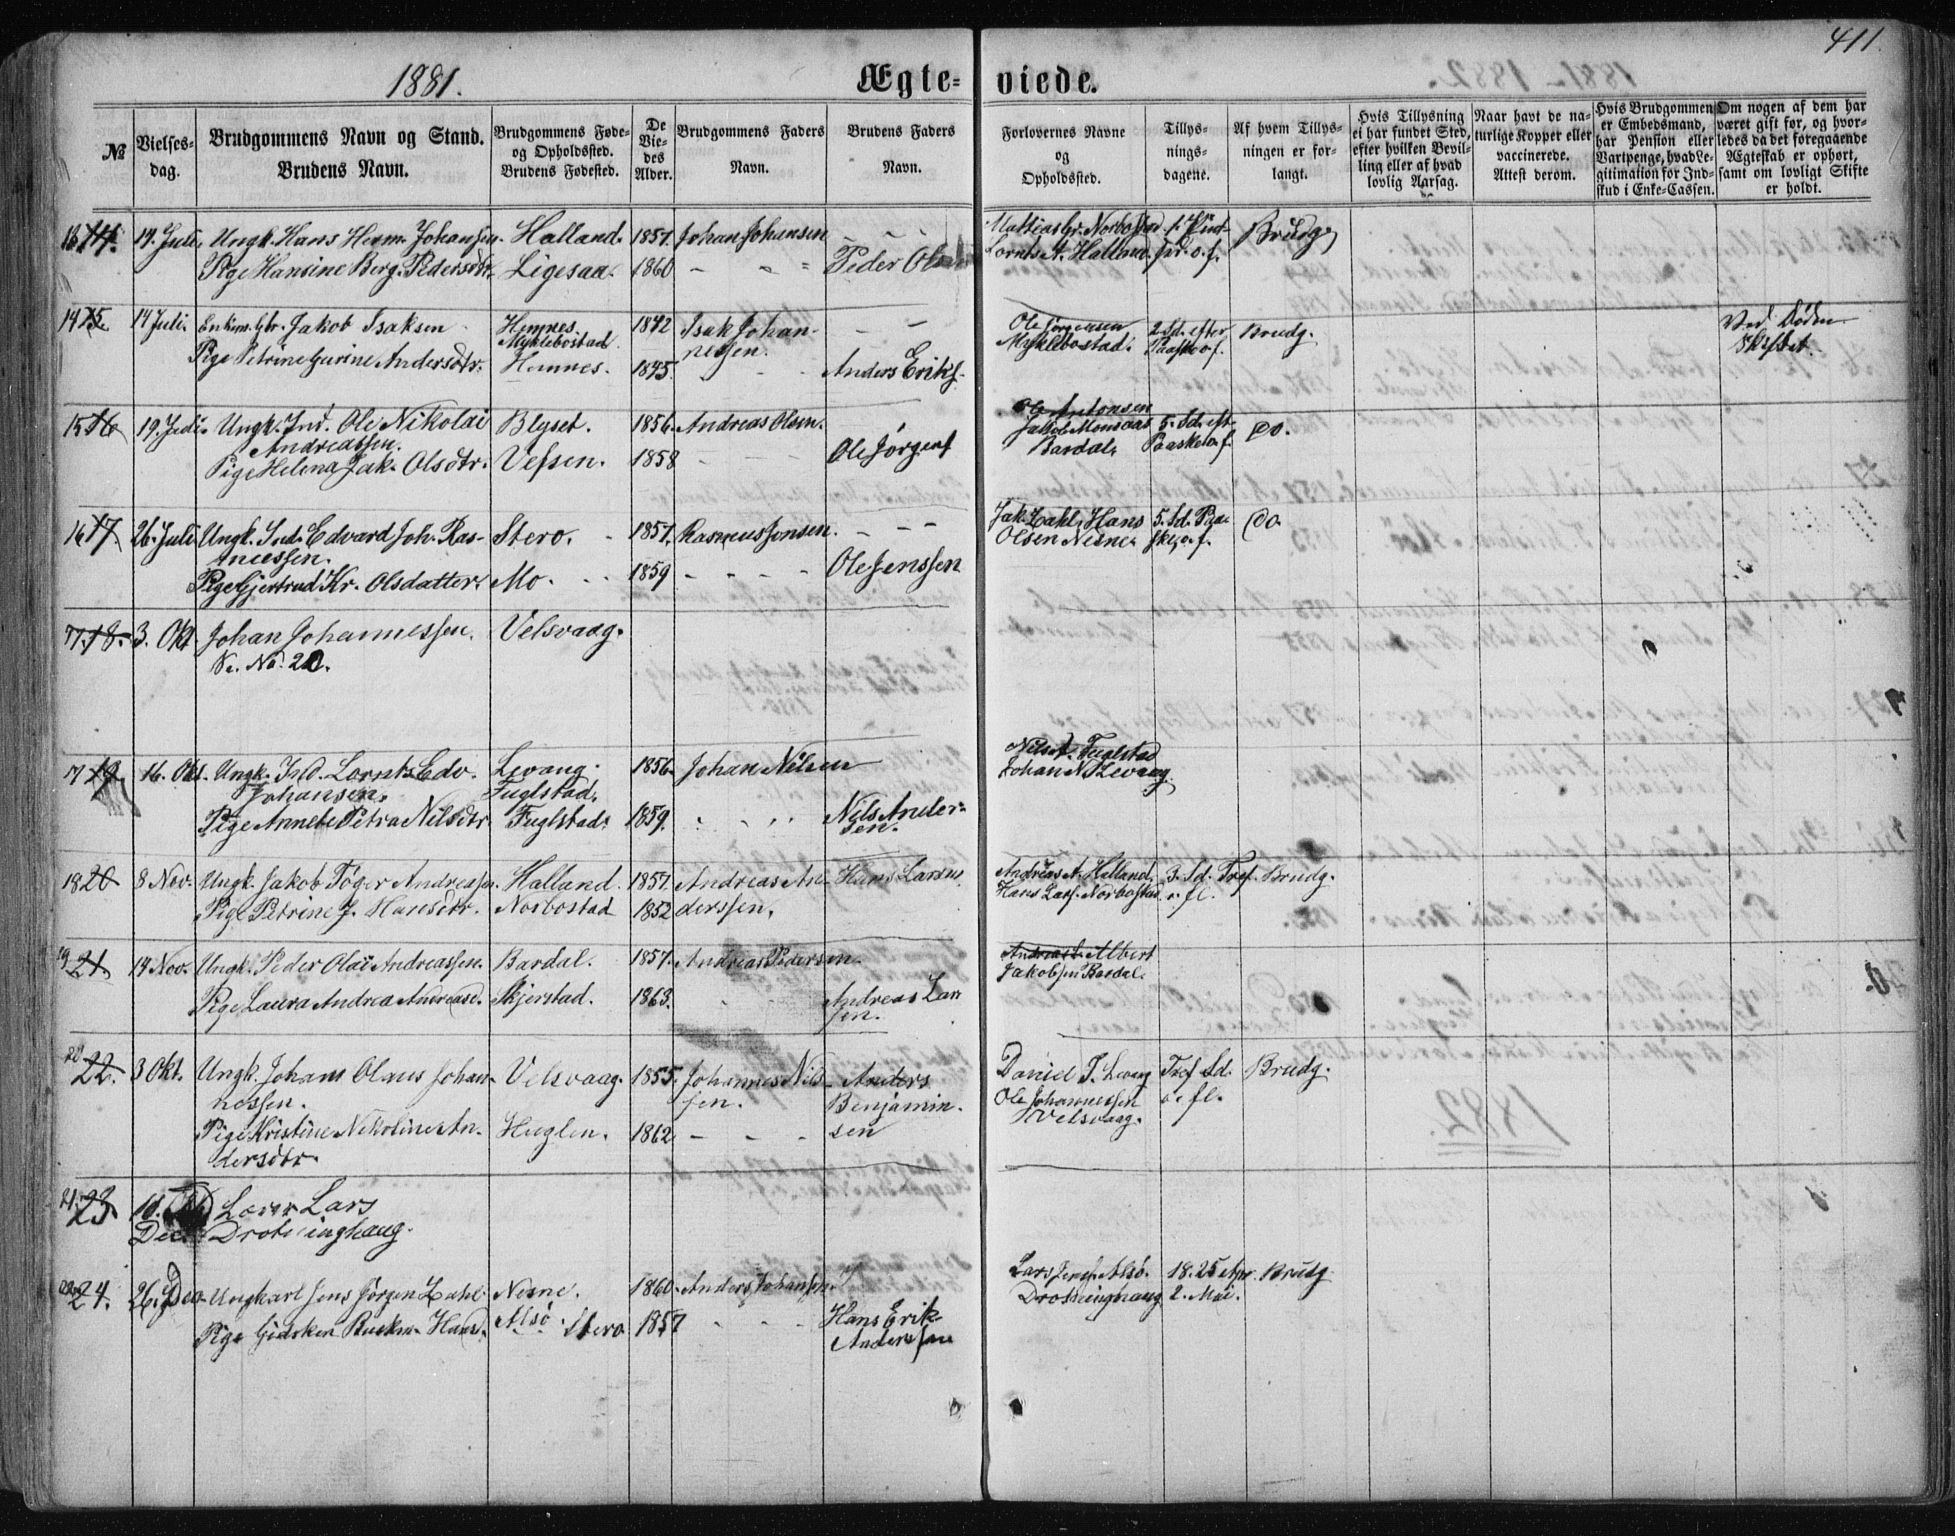 411.
1881.
Ægte- viede.
№
Vielses-
dag.
Brudgommens Navn og Stand.
Brudens Navn.
Brudgommens Føde-
og Opholdssted.
Brudens Fødested.
De
Vie-
des
Alder.
Brudgommens Faders
Navn.
Brudens Faders
Navn.
Forlovernes Navne
og
Opholdssted.
Tillys-
nings-
dagene.
Af hvem Tillys-
ningen er for-
langt.
Hvis Tillysning
ei har fundet Sted,
efter hvilken Bevil-
ling eller af hvad
lovlig Aarsag.
Naar havt de na-
turlige Kopper eller
vaccinerede.
Attest derom.
Hvis Brudgommen
er Embedsmand,
har Pension eller
Vartpenge, hvad Le-
gitimation for Ind-
skud i Enke-Cassen.
Om nogen af dem har
været gift før, og hvor-
ledes da det foregaaende
Ægteskab er ophørt,
samt om lovligt Skifte
er holdt.
13 14. 14. Juli, Ungk. Hans Herm. Johansen. Halland. 1857. Johan Johansen - - - Brudg.
Pige Hansine Berg. Pedersdtr. Ligesaa. 1860 - - - Peder Ols
14 15. 14 Juli. Enkem. Gbr. Jakob Isaksen Hemnes 1842 Isak Johan- - - Ole Jørgensen 2 Sd. efter Brudg. Ved Døden
Myklebostad nessen. Myklebostad. Paaske o. f. Skiftet.
Pige Petrine Gurine Andersdtr. Hemnes. 1845. - - Anders Eriks.
15 16 19. Juli. Ungk. Ind. Ole Nikolai Blyset. 1856. Andreas Olsen. Ole Antonsen 5. Sd. eft. do.
Andreassen. Bardal. Paaske o. f.
Pige Helena Jak. Olsdtr. Vefsen. 1858 - - - Ole Jørgens
16 17. 26. Juli Ungk. Ind. Edvard Joh. Ras- Stero. 1857. Rasmus Jonsen. - - - Jak. Zahl, Hans 5. Sd. Paa- do.
mussen. Olsen Nesne. ske, o. f.
Pige Gjertrud Kr. Olsdatter. Mo. 1859 - - - - Ole Jenssen
17 18. 3. Okt. Johan Johannessen. Velsvaag.
Se. No. 20.
17 19 16. Okt. Ungk. Ind. Lornts Edv. Levang. 1856. Johan Nilsen Nils A. Fuglstad
Johansen. Fuglstad. Johan N. Levang
Pige Annete Petra Nilsdtr. Fuglstad. 1859. Nils Ander-
sen.
18 20 8 Nov. Ungk. Jakob Tøger Andreassen. Halland. 1857. Andreas An- Hans Larsen Andreas A. Halland. 3. Sd. Tref. Brudg.
Pige Petrine J. Hansdtr. Norbostad 1852 derssen. Hans Lars. Norbostad o. fl.
19 21 14 Nov. Ungk. Peder Olai Andreassen. Bardal. 1857. Andreas Pedersen. Albert
Jakobsen Bardal.
Pige Laura Andrea Andreasd. Skjerstad. 1863. Andreas Lar-
sen.
20 22. 3 Okt. Ungk. Johan Olaus Johan- Velsvaag. 1855. Johannes Nils- Anders Daniel J. Levang Tref. Sd. Brudg.
nessen. sen. Benjamin- Ole Johannessen o. fl.
Pige Kristine Nikoline An- Huglen. 1862 - - - sen Velsvaag.
dersdtr.
21 23 10. Lars
Dec. Drotninghaug.
22 24. 26. Dec. Ungkarl Jens Jørgen Zahl Nesne. 1860. Anders Johansen. Lars Jens. Alsø. 18. 25 Apr. Brudg.
Alsø. Drotninghaug 2. Mai.
Pige Gidsken Hansd. Stero 1857 - - - Hans Erik
Anderssen